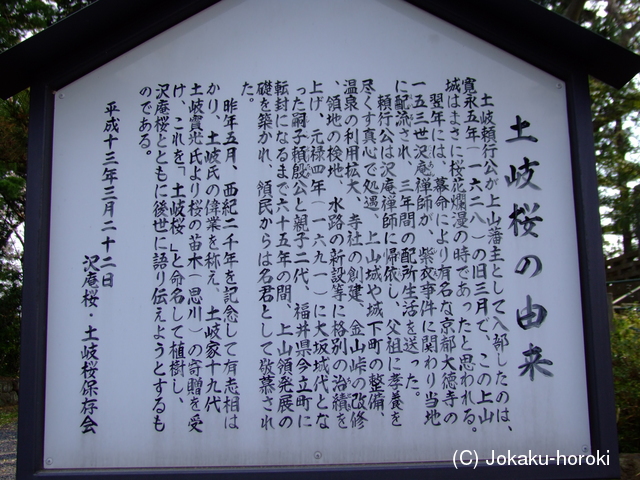 土岐桜の由来
土岐頼行公が上山藩主として入部したのは、
寛永五年(一六二八)の旧三月で、この上山
城はまさに桜花爛漫の時であったと思われる。
翌年には、幕命により有名な京都大徳寺の
一五三世沢庵禅師が、紫衣事件に関わり当地
に配流され、三年間の配所生活を送った。
頼行公は沢庵禅師に帰依し、父祖に孝養を
尽くす真心で処遇、上山城や城下町の整備、
温泉の利用拡大、寺社の創建、金山峠の改修
、領地の検地、水路の新設等に格別の治績を
上げ、元禄四年(一六九一)に大坂城代とな
った嗣子頼殷公と親子二代、福井県今立町に
転封になるまで六十五年の間、上山領発展の
礎を築かれ、領民からは名君として敬慕され
た。
昨年五月、西紀二千年を記念して有志相は
かり、土岐氏の偉業を称え、土岐家十九代
土岐實光氏より桜の苗木(思川)の寄贈を受
け、これを「土岐桜」と命名して植樹し、
沢庵桜とともに後世に語り伝えようとするも
のである。
平成十三年三月二十二日
沢庵桜・土岐桜保存会
(C) Jokaku-horoki